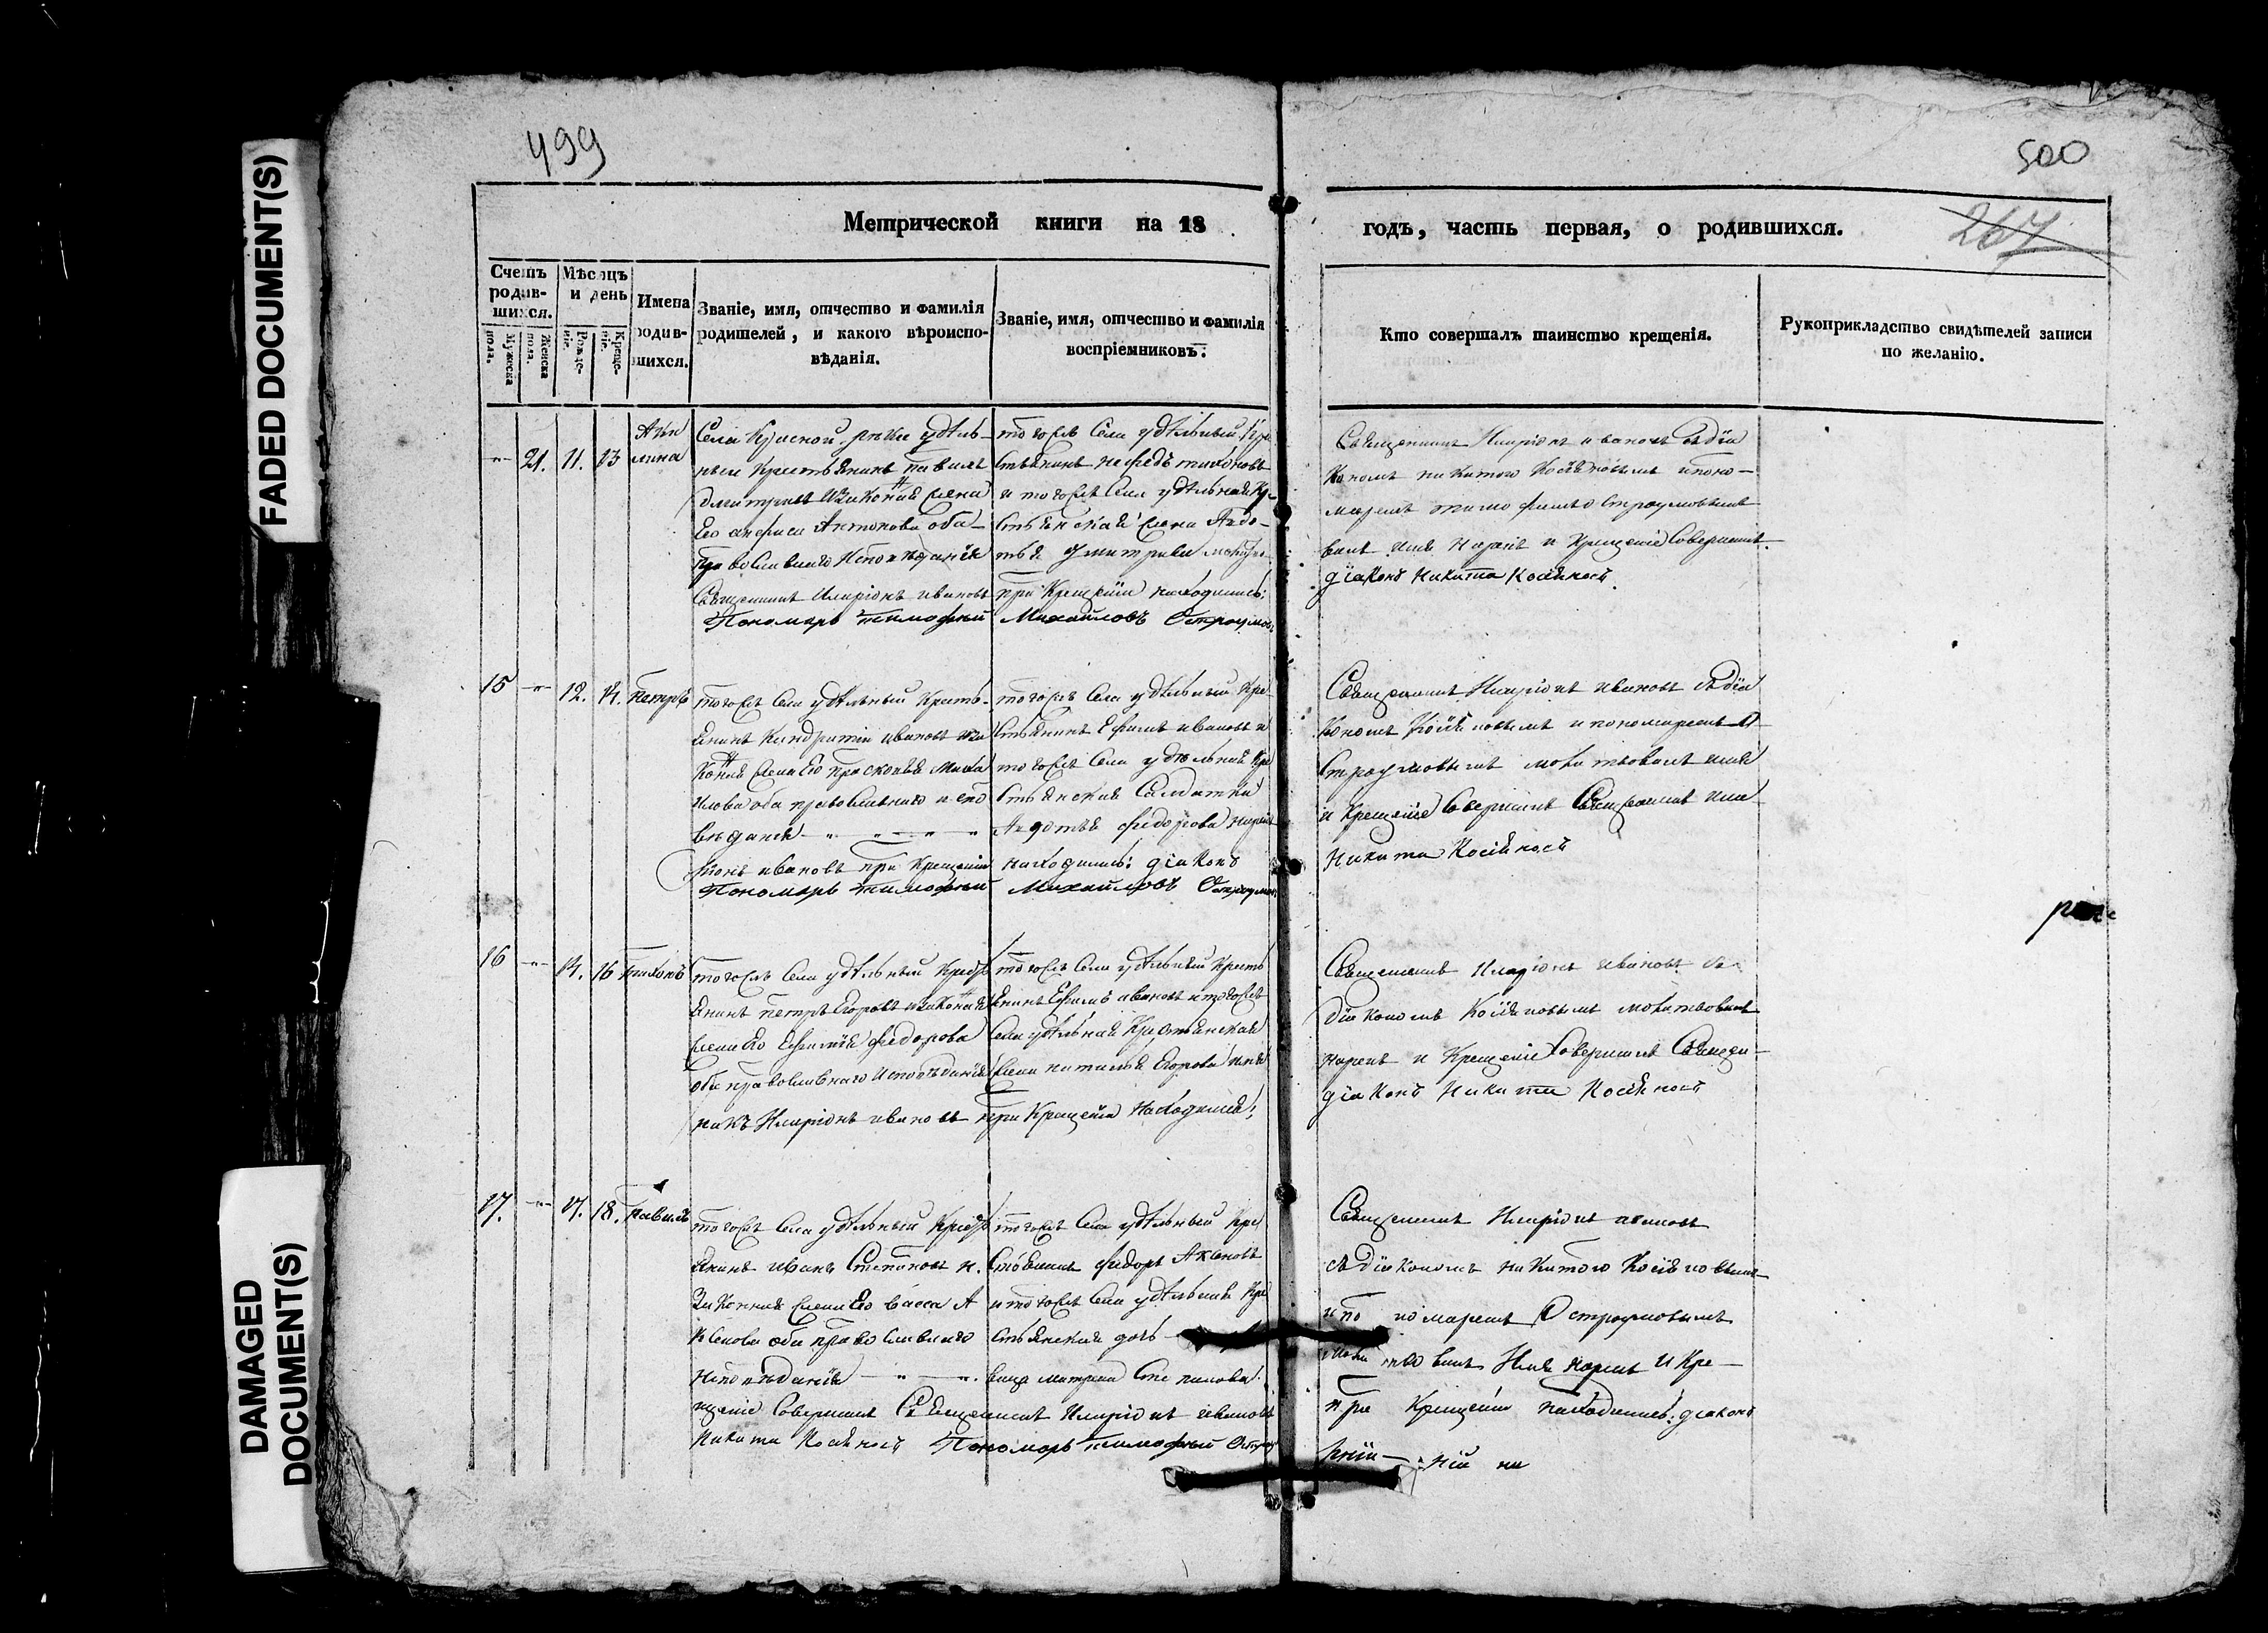 FADED DOCUMENT(S)
DAMAGED
DOCUMENT(S)
499
500
267
Метрической книги на 18
годъ, часть первая, о родившихся.
Счетъ родив-шихся.
Мѣсяцъ и день
Имена родив-шихся.
Званіе, имя, отчество и фамилія
родителей, и какого вѣроиспо-
вѣданія.
Званіе, имя, отчество и фамилія
воспріемниковъ:
Кто совершалъ таинство крещенія.
Рукоприкладство свидѣтелей записи
по желанію.
Мужеска пола.
Женска пола.
Рожде-ніе.
Креще-ніе.
21. 11. 13
Села Красной рѣки удѣль-
ный крестьянинъ павилъ
дмитріевъ и законная жена
Его анфиса Антонова оба
православнаго исповѣданія
Священникъ Иларіонъ ивановъ
Пономарь тимофей
тогожъ Села удѣльный Кре
стьянинъ тихоновъ
и тогожъ Села удѣльная Кр
стьянская жена Авдо-
тья дмитріева
при Крещеніи находились:
Михайловъ Остроумов
Священникъ Иларіонъ ивановъ съ діа
кономъ никитою Косіяновымъ и поно-
маремъ Остроумовымъ
имя нареклъ и Крещеніе Совершилъ.
діаконъ Никита Косіяновъ
15 12. 14. петръ
тогожъ Села удѣльный Кресть-
янинъ Кандратій ивановъ и за
конная жена Его прасковья Миха
илова оба православнаго испо
вѣданія
ріонъ ивановъ при Крещеніи
Пономарь тимофей
тогожъ Села удѣльный Кре
стьянинъ Ефимъ ивановъ и
тогожъ Села удѣльная Кре
стьянская Салдатка
Авдотья федорова
находились: діаконъ
Михайловъ Остроумов
Священникъ Иларіонъ ивановъ съ діа
кономъ Косіяновымъ и пономаремъ О
строумовымъ молитвовалъ имя
и Крещеніе Совершилъ Священникъ Ила
Никита Косіяновъ
16 14. 16 тихонъ
тогожъ Села удѣльный Кресть
янинъ петръ Егоровъ и законная
жена Его Ефимія федорова
оба православнаго исповѣданія
никъ Иларіонъ ивановъ
тогожъ Села удѣльный Кресть
янинъ Ефимъ ивановъ и тогожъ
Села удѣльная Крестьянская
жена наталья Егорова имя
при Крещеніи находились:
Священникъ Иларіонъ ивановъ съ
діакономъ Косіяновымъ молитвовалъ
нареклъ и Крещеніе Совершилъ Священ-
діаконъ Никита Косіяновъ
17. 17. 18. павилъ
тогожъ Села удѣльный Кресть
янинъ иванъ Степановъ и
законная жена Его васса А
ксенова оба православнаго
исповѣданія
щеніе Совершилъ Священникъ Иларіонъ ивановъ
Никита Косіяновъ Пономарь тимофей Остроу
тогожъ Села удѣльный Кре
стьянинъ федоръ Аксеновъ
и тогожъ Села удѣльная Кре
стьянская дочь
вица матрена Степанова
Священникъ Иларіонъ ивановъ
съ діакономъ никитою Косіяновымъ
и пономаремъ Остроумовымъ
молитвовалъ Имя нареклъ и Кре-
при Крещеніи находились: діаконъ